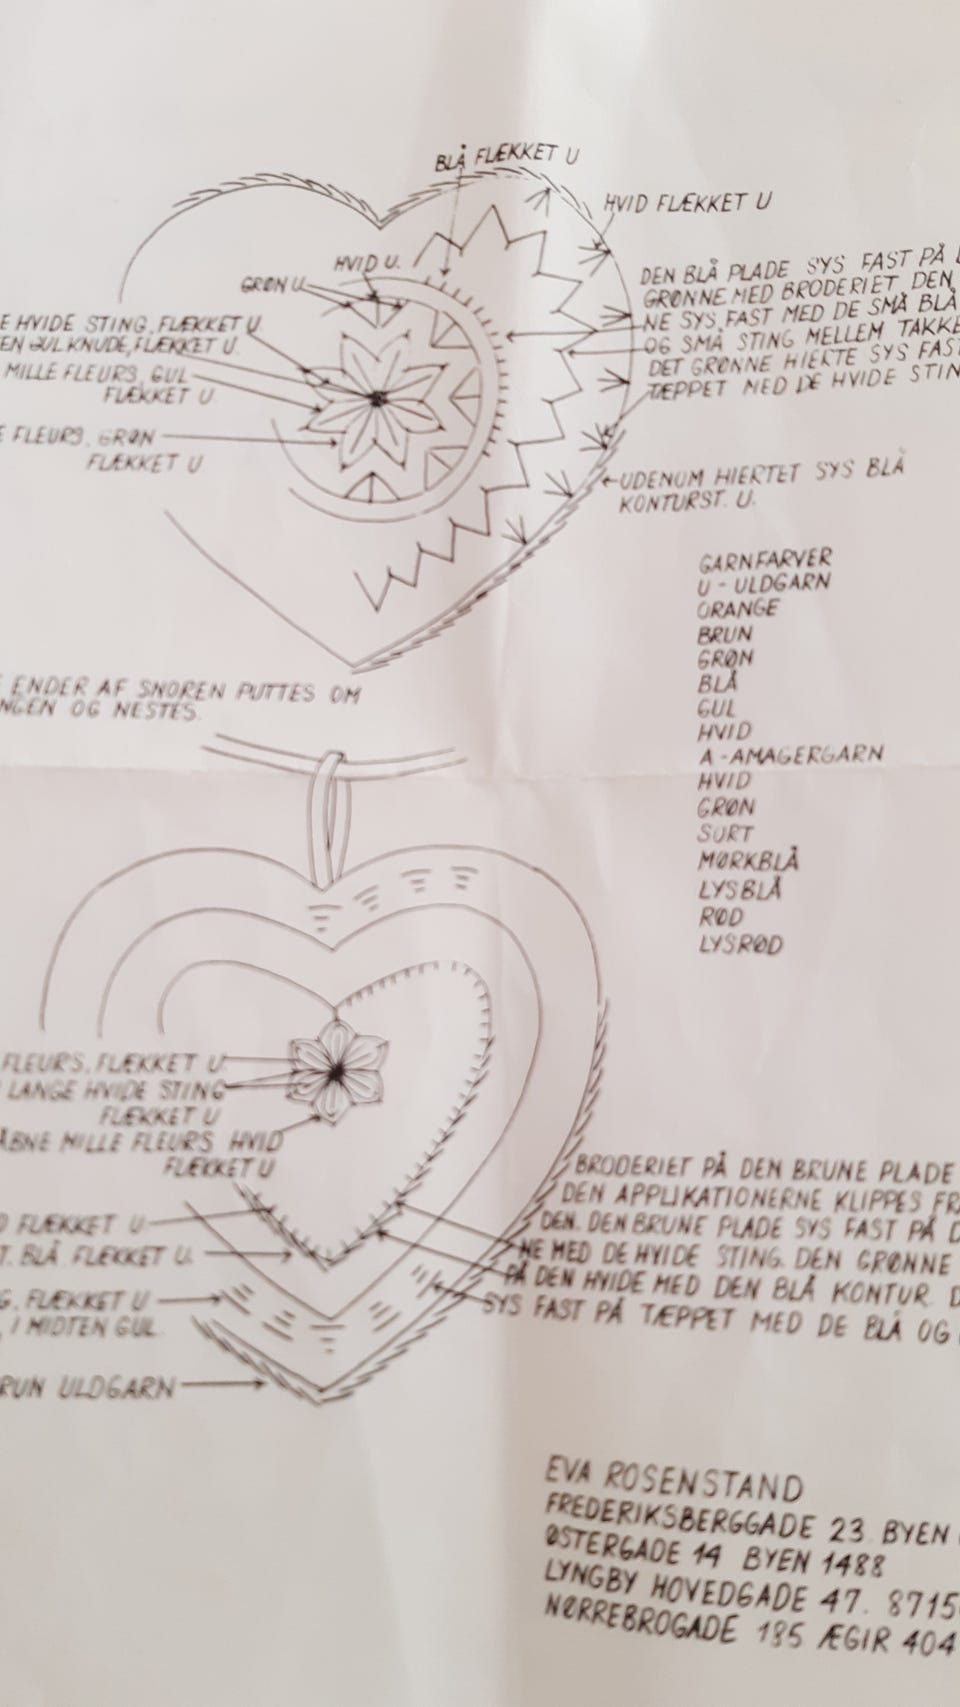 BLÅ FLÆKKET U
HVID FLÆKKET U
HVID U.
GRØN U.
E HVIDE STING, FLÆKKET U.
EN GUL KNUDE, FLÆKKET U.
MILLE FLEURS, GUL
FLÆKKET U.
E FLEURS, GRØN
FLÆKKET U
DEN BLÅ PLADE SYS FAST PÅ
GRØNNE MED BRODERIET DEN
NE SYS FAST MED DE SMÅ BLÅ
OG SMÅ STING MELLEM TAKKE
DET GRØNNE HIERTE SYS FAST
TÆPPET MED DE HVIDE STIN
UDENUM HIERTET SYS BLÅ
KONTURST. U.
GARNFARVER
U - ULDGARN
ORANGE
BRUN
GRØN
BLÅ
GUL
HVID
A - AMAGERGARN
HVID
GRØN
SORT
MØRKBLÅ
LYSBLÅ
RØD
LYSRØD
ENDER AF SNOREN PUTTES OM
NGEN OG NESTES.
FLEURS, FLÆKKET U.
LANGE HVIDE STING
FLÆKKET U
ÅBNE MILLE FLEURS HVID
FLÆKKET U
D FLÆKKET U
T. BLÅ FLÆKKET U.
G. FLÆKKET U
, I MIDTEN GUL.
RUN ULDGARN
BRODERIET PÅ DEN BRUNE PLADE
DEN APPLIKATIONERNE KLIPPES FR
DEN. DEN BRUNE PLADE SYS FAST PÅ D
NE MED DE HVIDE STING. DEN GRØNNE
PÅ DEN HVIDE MED DEN BLÅ KONTUR. D
SYS FAST PÅ TÆPPET MED DE BLÅ OG
EVA ROSENSTAND
FREDERIKSBERGGADE 23. BYEN
ØSTERGADE 14 BYEN 1488
LYNGBY HOVEDGADE 47. 8715
NØRREBROGADE 185 ÆGIR 404